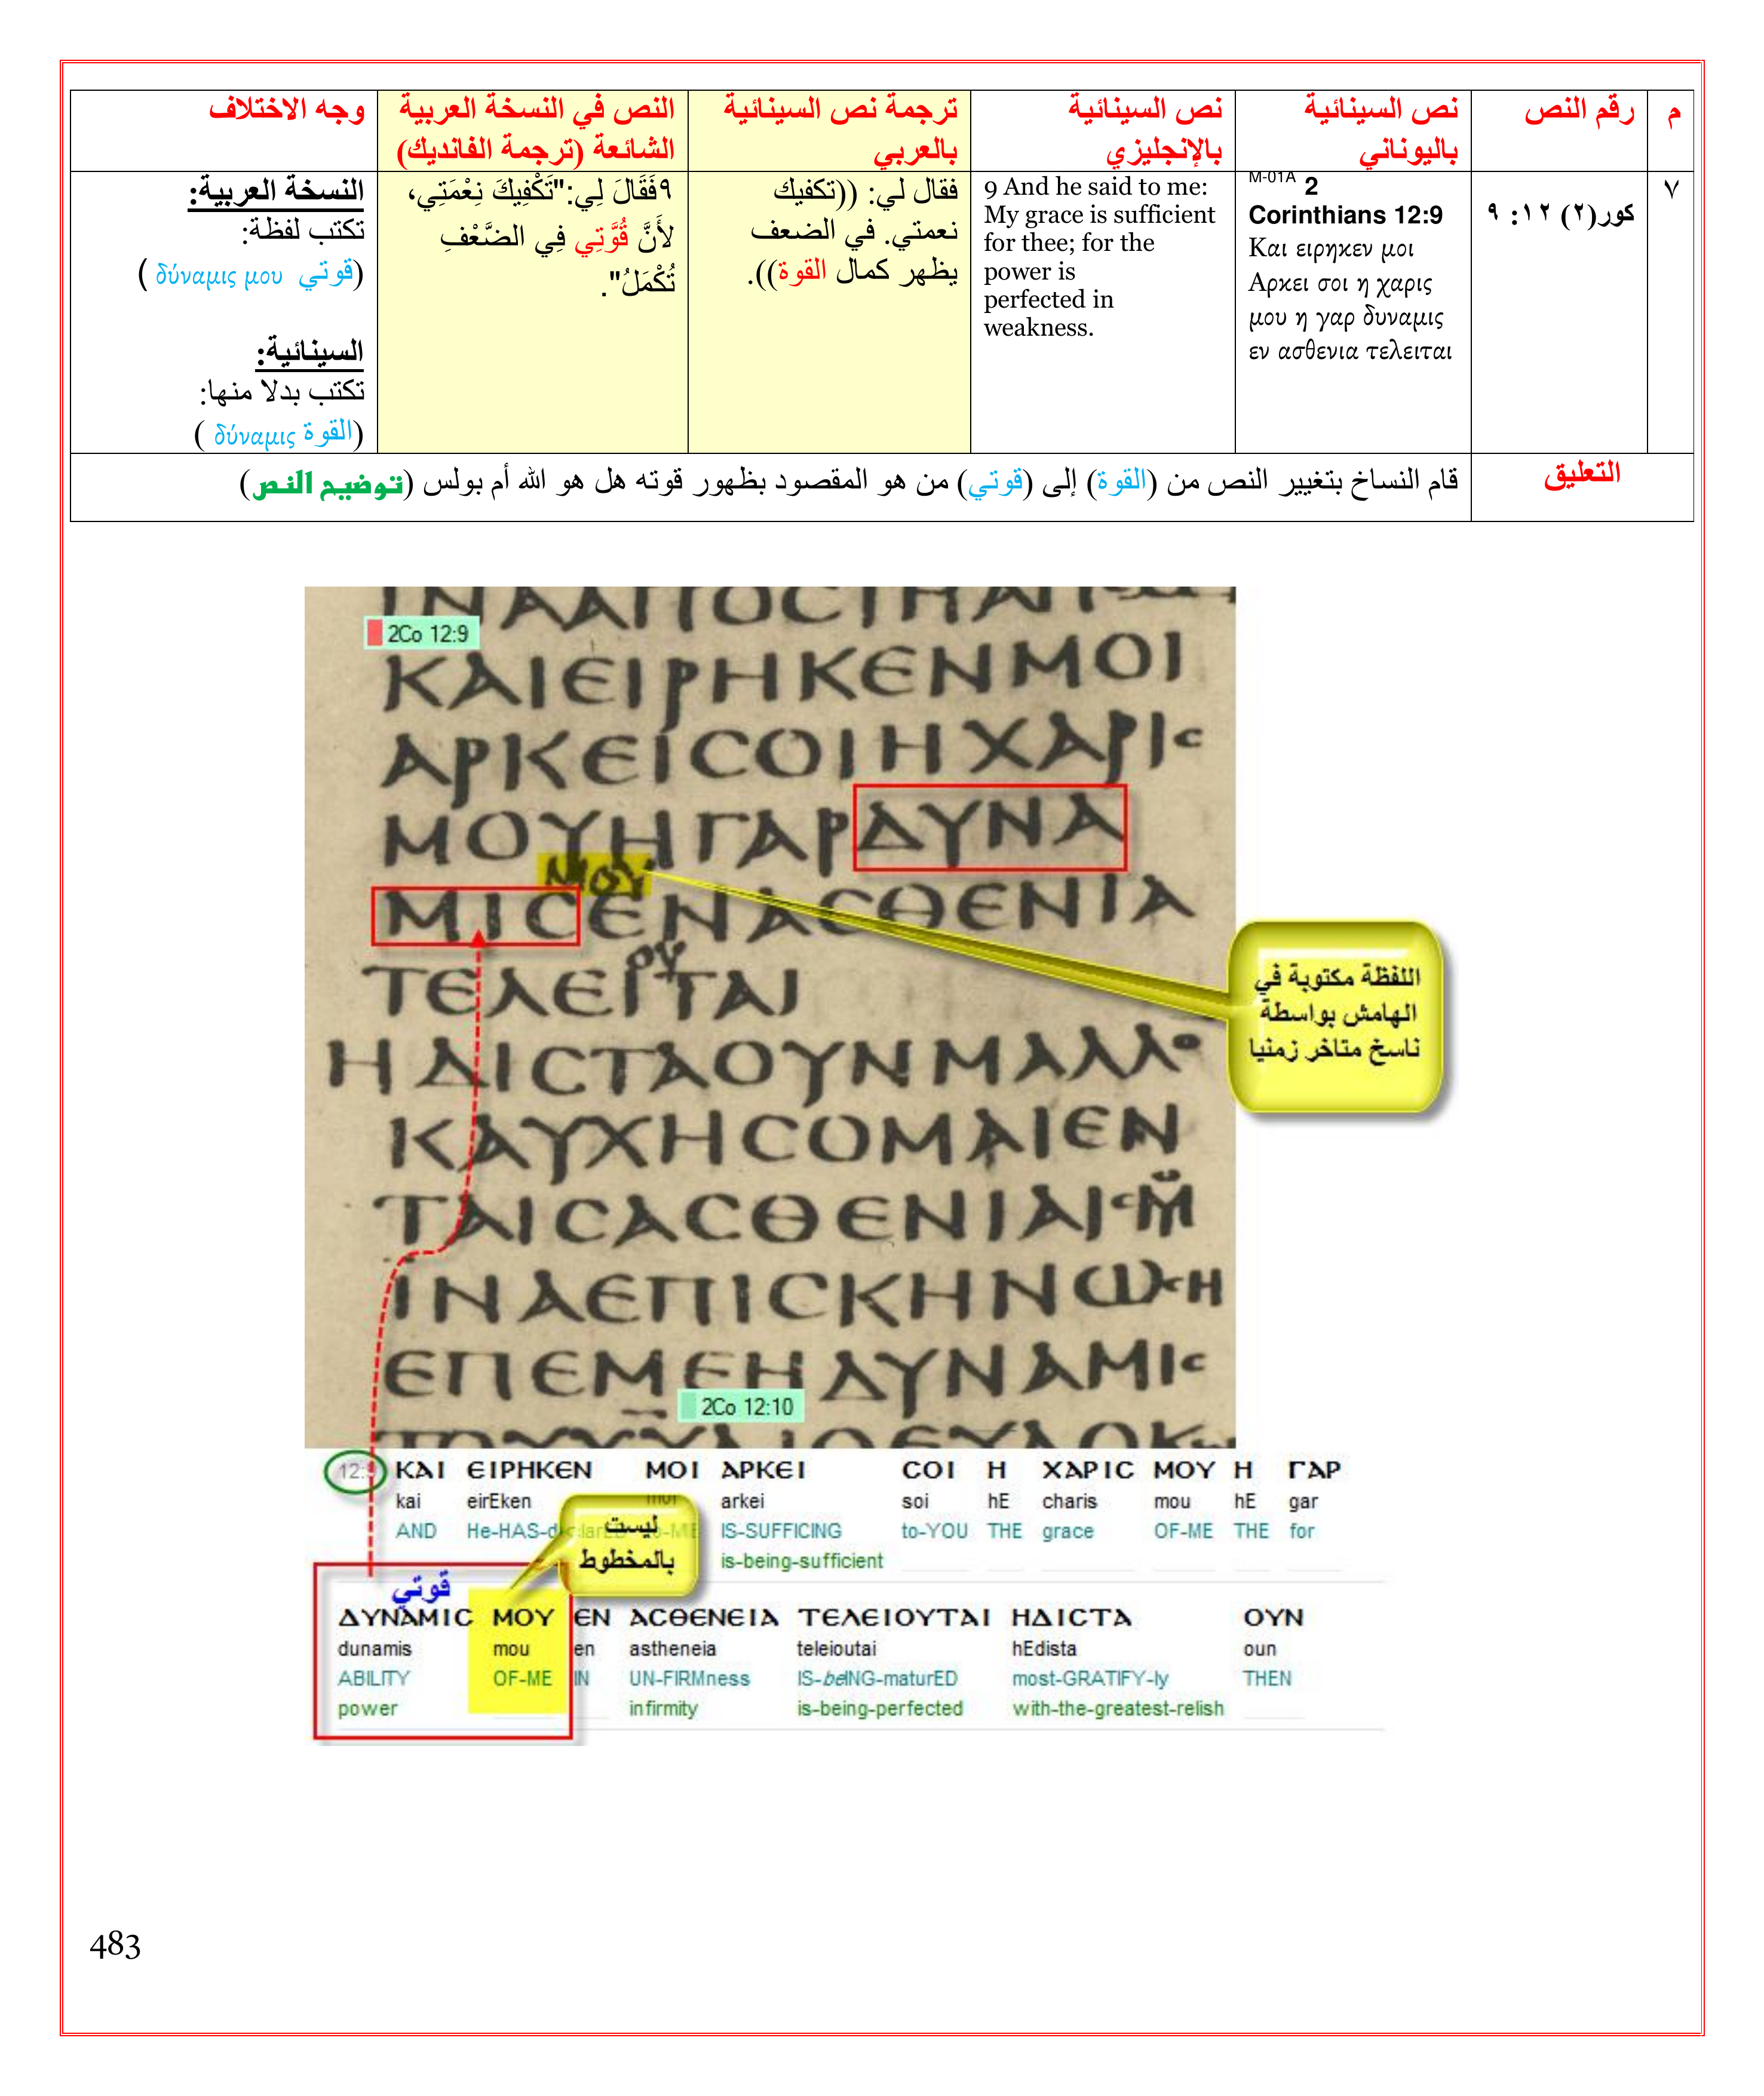 م
رقم النص
نص السينائية
باليوناني
نص السينائية
بالإنجليزي
ترجمة نص السينائية
بالعربي
النص في النسخة العربية
الشائعة (ترجمة الفانديك)
وجه الاختلاف
٧
كور(٢) ١٢: ٩
M-01A 2
Corinthians 12:9
Και ειρηκεν μοι
Αρκει σοι η χαρις
μου η γαρ δυναμις
εν ασθενια τελειται
9 And he said to me:
My grace is sufficient
for thee; for the
power is
perfected in
weakness.
فقال لي: ((تكفيك
نعمتي. في الضعف
يظهر كمال القوة)).
٩فَقَالَ لِي:"تَكْفِيكَ نِعْمَتِي،
لأَنَّ قُوَّتِي فِي الضَّعْفِ
تُكْمَلُ".
النسخة العربية:
تكتب لفظة:
(قوتي δύναμις μου )
السينائية:
تكتب بدلا منها:
(القوة δύναμις )
التعليق
قام النساخ بتغيير النص من (القوة) إلى (قوتي) من هو المقصود بظهور قوته هل هو الله أم بولس (توضيح النص)
2Co 12:9
ΚΑΙΕΙΡΗΚΕΝΜΟΙ
ΑΡΚΕΙCΟΙΗΧΑΡΙC
ΜΟΥΗΓΑΡΔΥΝΑ
ΜΟΥ
ΜΙCΕΝΑCΘΕΝΙΑ
ΟΥ
ΤΕΛΕΙΤΑΙ
ΗΔΙCΤΑΟΥΝΜΑΛΛΟ
ΚΑΥΧΗCΟΜΑΙΕΝ
ΤΑΙCΑCΘΕΝΙΑΙC
ΙΝΑΕΠΙCΚΗΝΩCΗ
ΕΠΕΜΕΗΔΥΝΑΜΙC
2Co 12:10
اللفظة مكتوبة في
الهامش بواسطة
ناسخ متاخر زمنيا
12:9 ΚΑΙ ΕΙΡΗΚΕΝ ΜΟΙ ΑΡΚΕΙ CΟΙ Η ΧΑΡΙC ΜΟΥ Η ΓΑΡ
kai eirEken moi arkei soi hE charis mou hE gar
AND He-HAS-declarED to-ME IS-SUFFICING to-YOU THE grace OF-ME THE for
is-being-sufficient
ليست
بالمخطوط
قوتي
ΔΥΝΑΜΙC ΜΟΥ ΕΝ ΑCΘΕΝΕΙΑ ΤΕΛΕΙΟΥΤΑΙ ΗΔΙCΤΑ ΟΥΝ
dunamis mou en astheneia teleioutai hEdista oun
ABILITY OF-ME IN UN-FIRMness IS-beING-maturED most-GRATIFY-ly THEN
power infirmity is-being-perfected with-the-greatest-relish
483